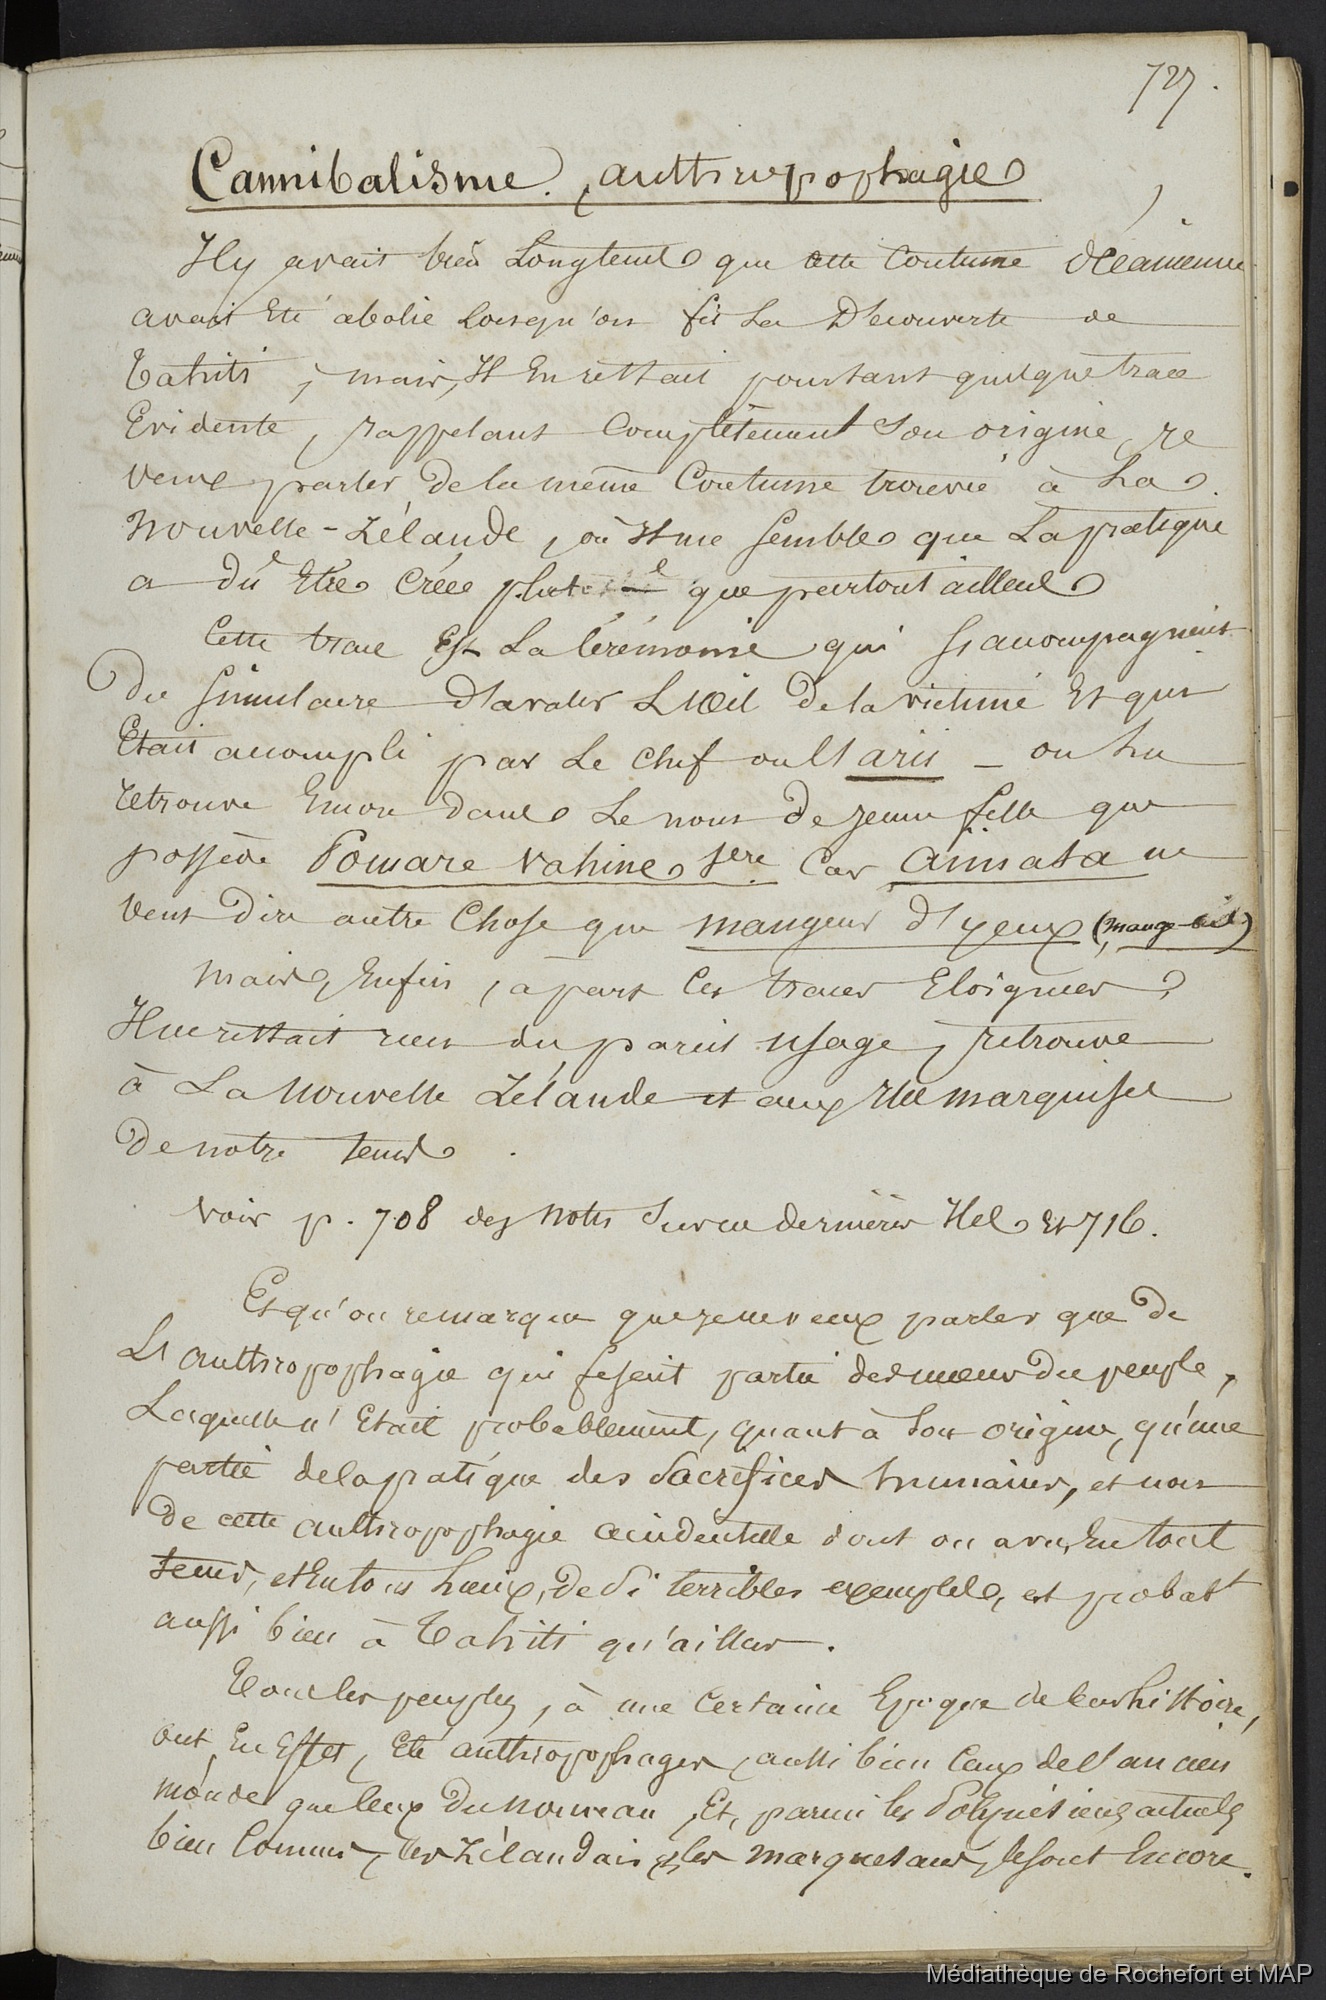 727.
Cannibalisme. , anthropophagie
Il y avait bien Longtems que cette Coutume Océanienne
avait Eté abolie lorsqu'on fit La Découverte de
Tahiti ; mais, Il En restait pourtant quelque trace
Evidente, rappelant Complètement son origine, je
veux parler de la même Coutume trouvée à La
Nouvelle-Zélande, où Il me semble que La pratique
a dû Etre Créée plutôt que partout ailleurs
Cette trace Est La Cérémonie qui s'accompagnait
Du Simulacre D'avaler L'Œil De la victime Et qui
Etait accompli par Le Chef ou l'arii _ on La
retrouve Encore dans Le nom De jeune fille que
possède Pomare vahine 1ere Car aimata ne
veut Dire autre Chose que mangeur d'yeux (mange-œil)
Mais, Enfin, a part Ces traces Eloignées,
Il ne restait rien du pareil usage, retrouvé
à La Nouvelle Zélande et aux Iles marquises
De notre tems.
Voir p. 708 des Notes Sur ces dernières Iles Et 716.
Et qu'on remarque que je ne veux parler que De
L'anthropophagie qui fesait partie des mœurs Du peuple,
Laquelle n'Etait probablement, quant à Son origine, qu'une
partie de la pratique des Sacrifices humains, et non
De cette anthropophagie accidentelle dont on a vu, En tout
tems, et En tous Lieux, De Si terribles exemples, et probabt
aussi bien à Tahiti qu'ailleurs.
Tous les peuples, à une Certaine Epoque de leur histoire,
ont, En Effet, Eté anthropophages, aussi bien Ceux de l'ancien
monde que Ceux Du nouveau, Et, parmi les Polynésiens actuels
bien Connus, les Zélandais et les Marquesans, le sont Encore.
Médiathèque de Rochefort et MAP